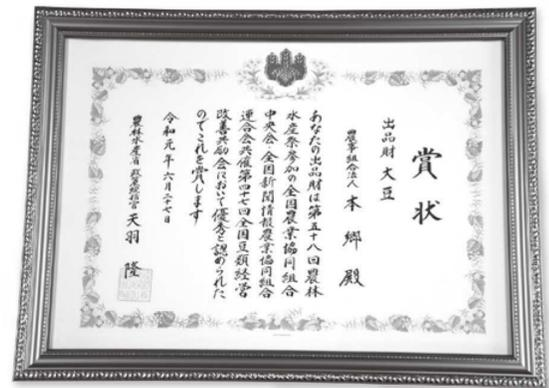 賞状
出品財 大豆
農事組合法人 本郷 殿
あなたの出品財は第五十八回農林
水産祭参加の全国農業協同組合
中央会・全国新聞情報農業協同組合
連合会共催第四十七回全国豆類経営
改善共励会において優秀と認められた
のでこれを賞します
令和元年六月二十七日
農林水産省政策統括官 天羽 隆